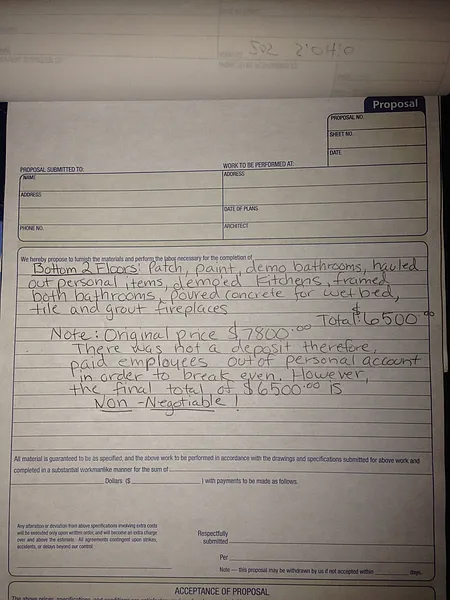 Proposal
PROPOSAL NO.
SHEET NO.
DATE
PROPOSAL SUBMITTED TO:
WORK TO BE PERFORMED AT:
NAME
ADDRESS
ADDRESS
DATE OF PLANS
PHONE NO.
ARCHITECT
We hereby propose to furnish the materials and perform the labor necessary for the completion of
Bottom 2 Floors: Patch, paint, demo bathrooms, hauled
out personal items, demoied Kitchens, framed
both bathrooms, poured concrete for wet bed,
tile and grout fireplaces
Total: $6500.00
Note: Original price $7800.00
There was not a deposit therefore,
paid employees out of personal account
in order to break even. However,
the final total of $6500.00 is
Non-Negotiable!
All material is guaranteed to be as specified, and the above work to be performed in accordance with the drawings and specifications submitted for above work and
completed in a substantial workmanlike manner for the sum of
Dollars ($ ) with payments to be made as follows.
Any alteration or deviation from above specifications involving extra costs
will be executed only upon written order, and will become an extra charge
over and above the estimate. All agreements contingent upon strikes,
accidents, or delays beyond our control.
Respectfully
submitted
Per
Note — this proposal may be withdrawn by us if not accepted within days.
ACCEPTANCE OF PROPOSAL